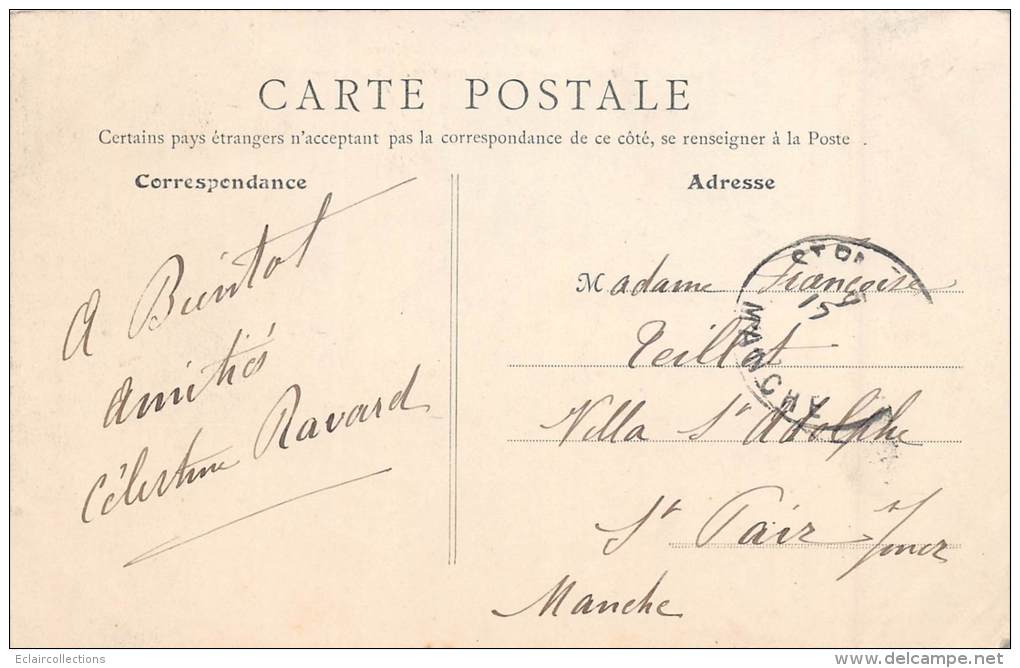 CARTE POSTALE
Certains pays étrangers n'acceptant pas la correspondance de ce côté, se renseigner à la Poste .
Correspondance
A Bientot
Amitiés
Célestine Ravard
Adresse
Madame Françoise
Teillet
Villa St Adolphe
St Pair s/mer
Manche
MANCHE
15
Eclaircollections
delcampe.net